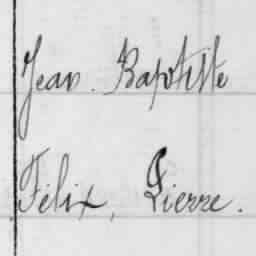 Jean. Baptiste
Félix, Pierre.